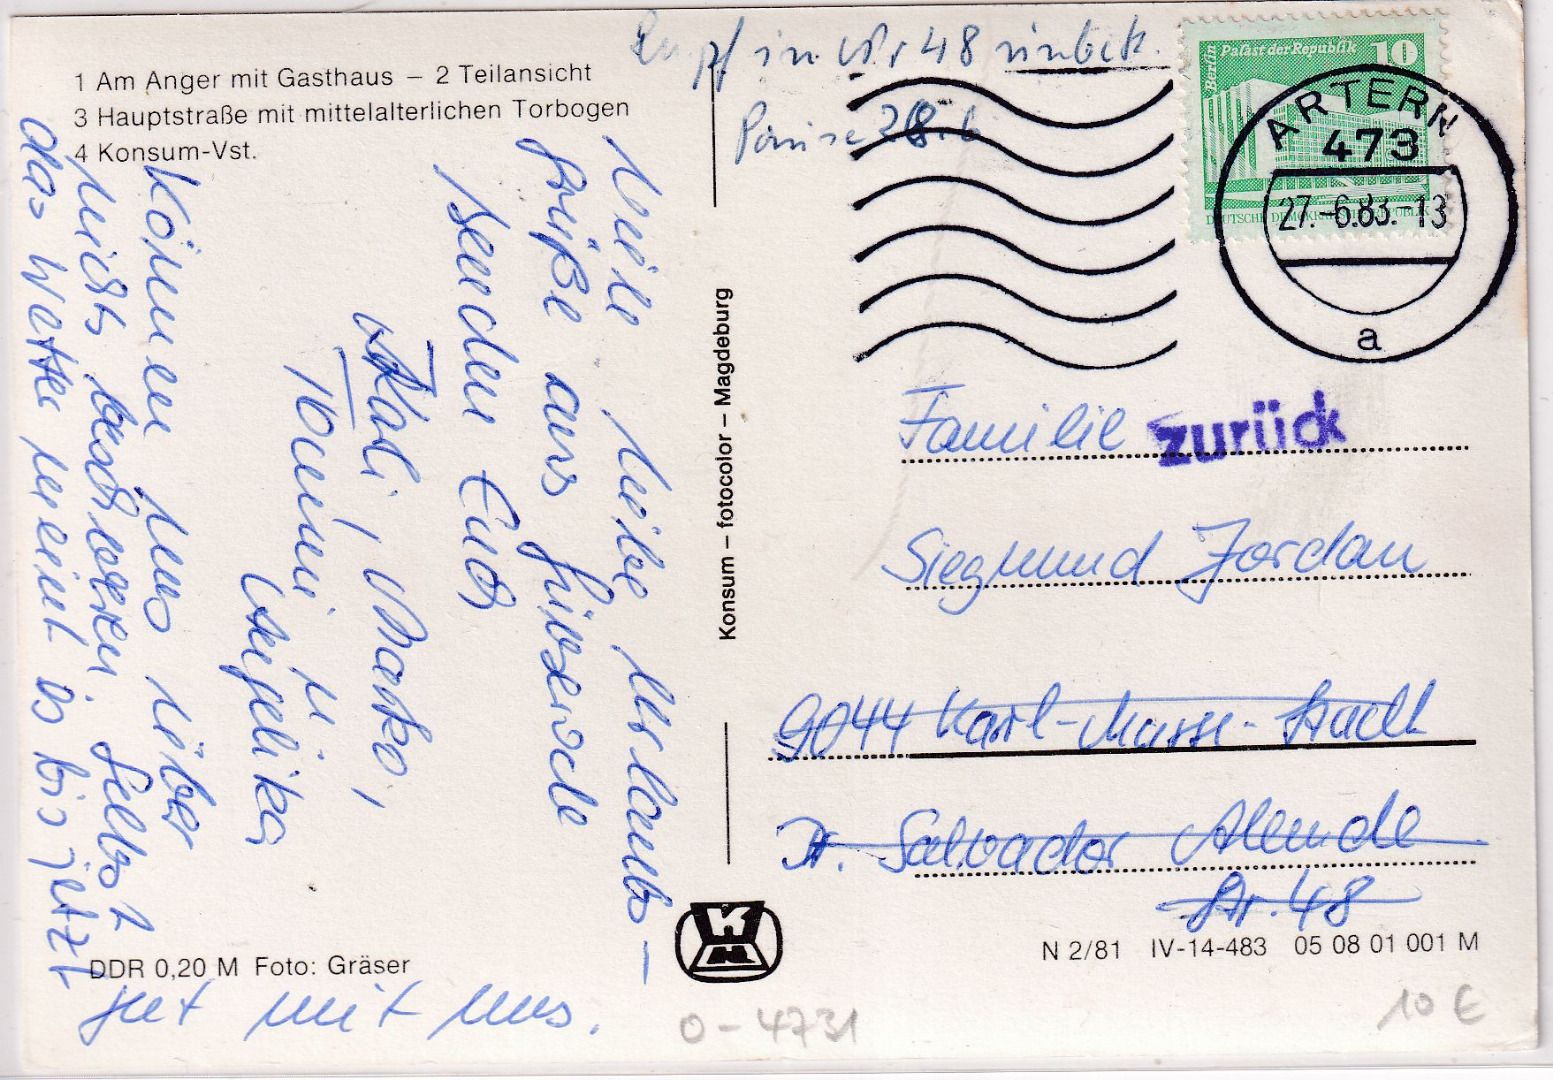 1 Am Anger mit Gasthaus – 2 Teilansicht
3 Hauptstraße mit mittelalterlichen Torbogen
4 Konsum-Vst.
Viele liebe Urlaubs-
grüße aus
senden Euch
Marko,
Angelika
Können uns lüber
nicht beschweren selbst
das Wetter meint es bis jetzt
gut mit uns.
DDR 0,20 M Foto: Gräser
Konsum – fotocolor – Magdeburg
in Nr 48 unbek.
Berlin Palast der Republik 10
DEUTSCHE DEMOKRATISCHE REPUBLIK
ARTERN
473
27.-6.83.-13
a
zurück
Familie
Siegmund Jordan
9044 Karl-Marx-Stadt
Dr. Salvador Alende
Str. 48
N 2/81 IV-14-483 05 08 01 001 M
O-4731
10 €